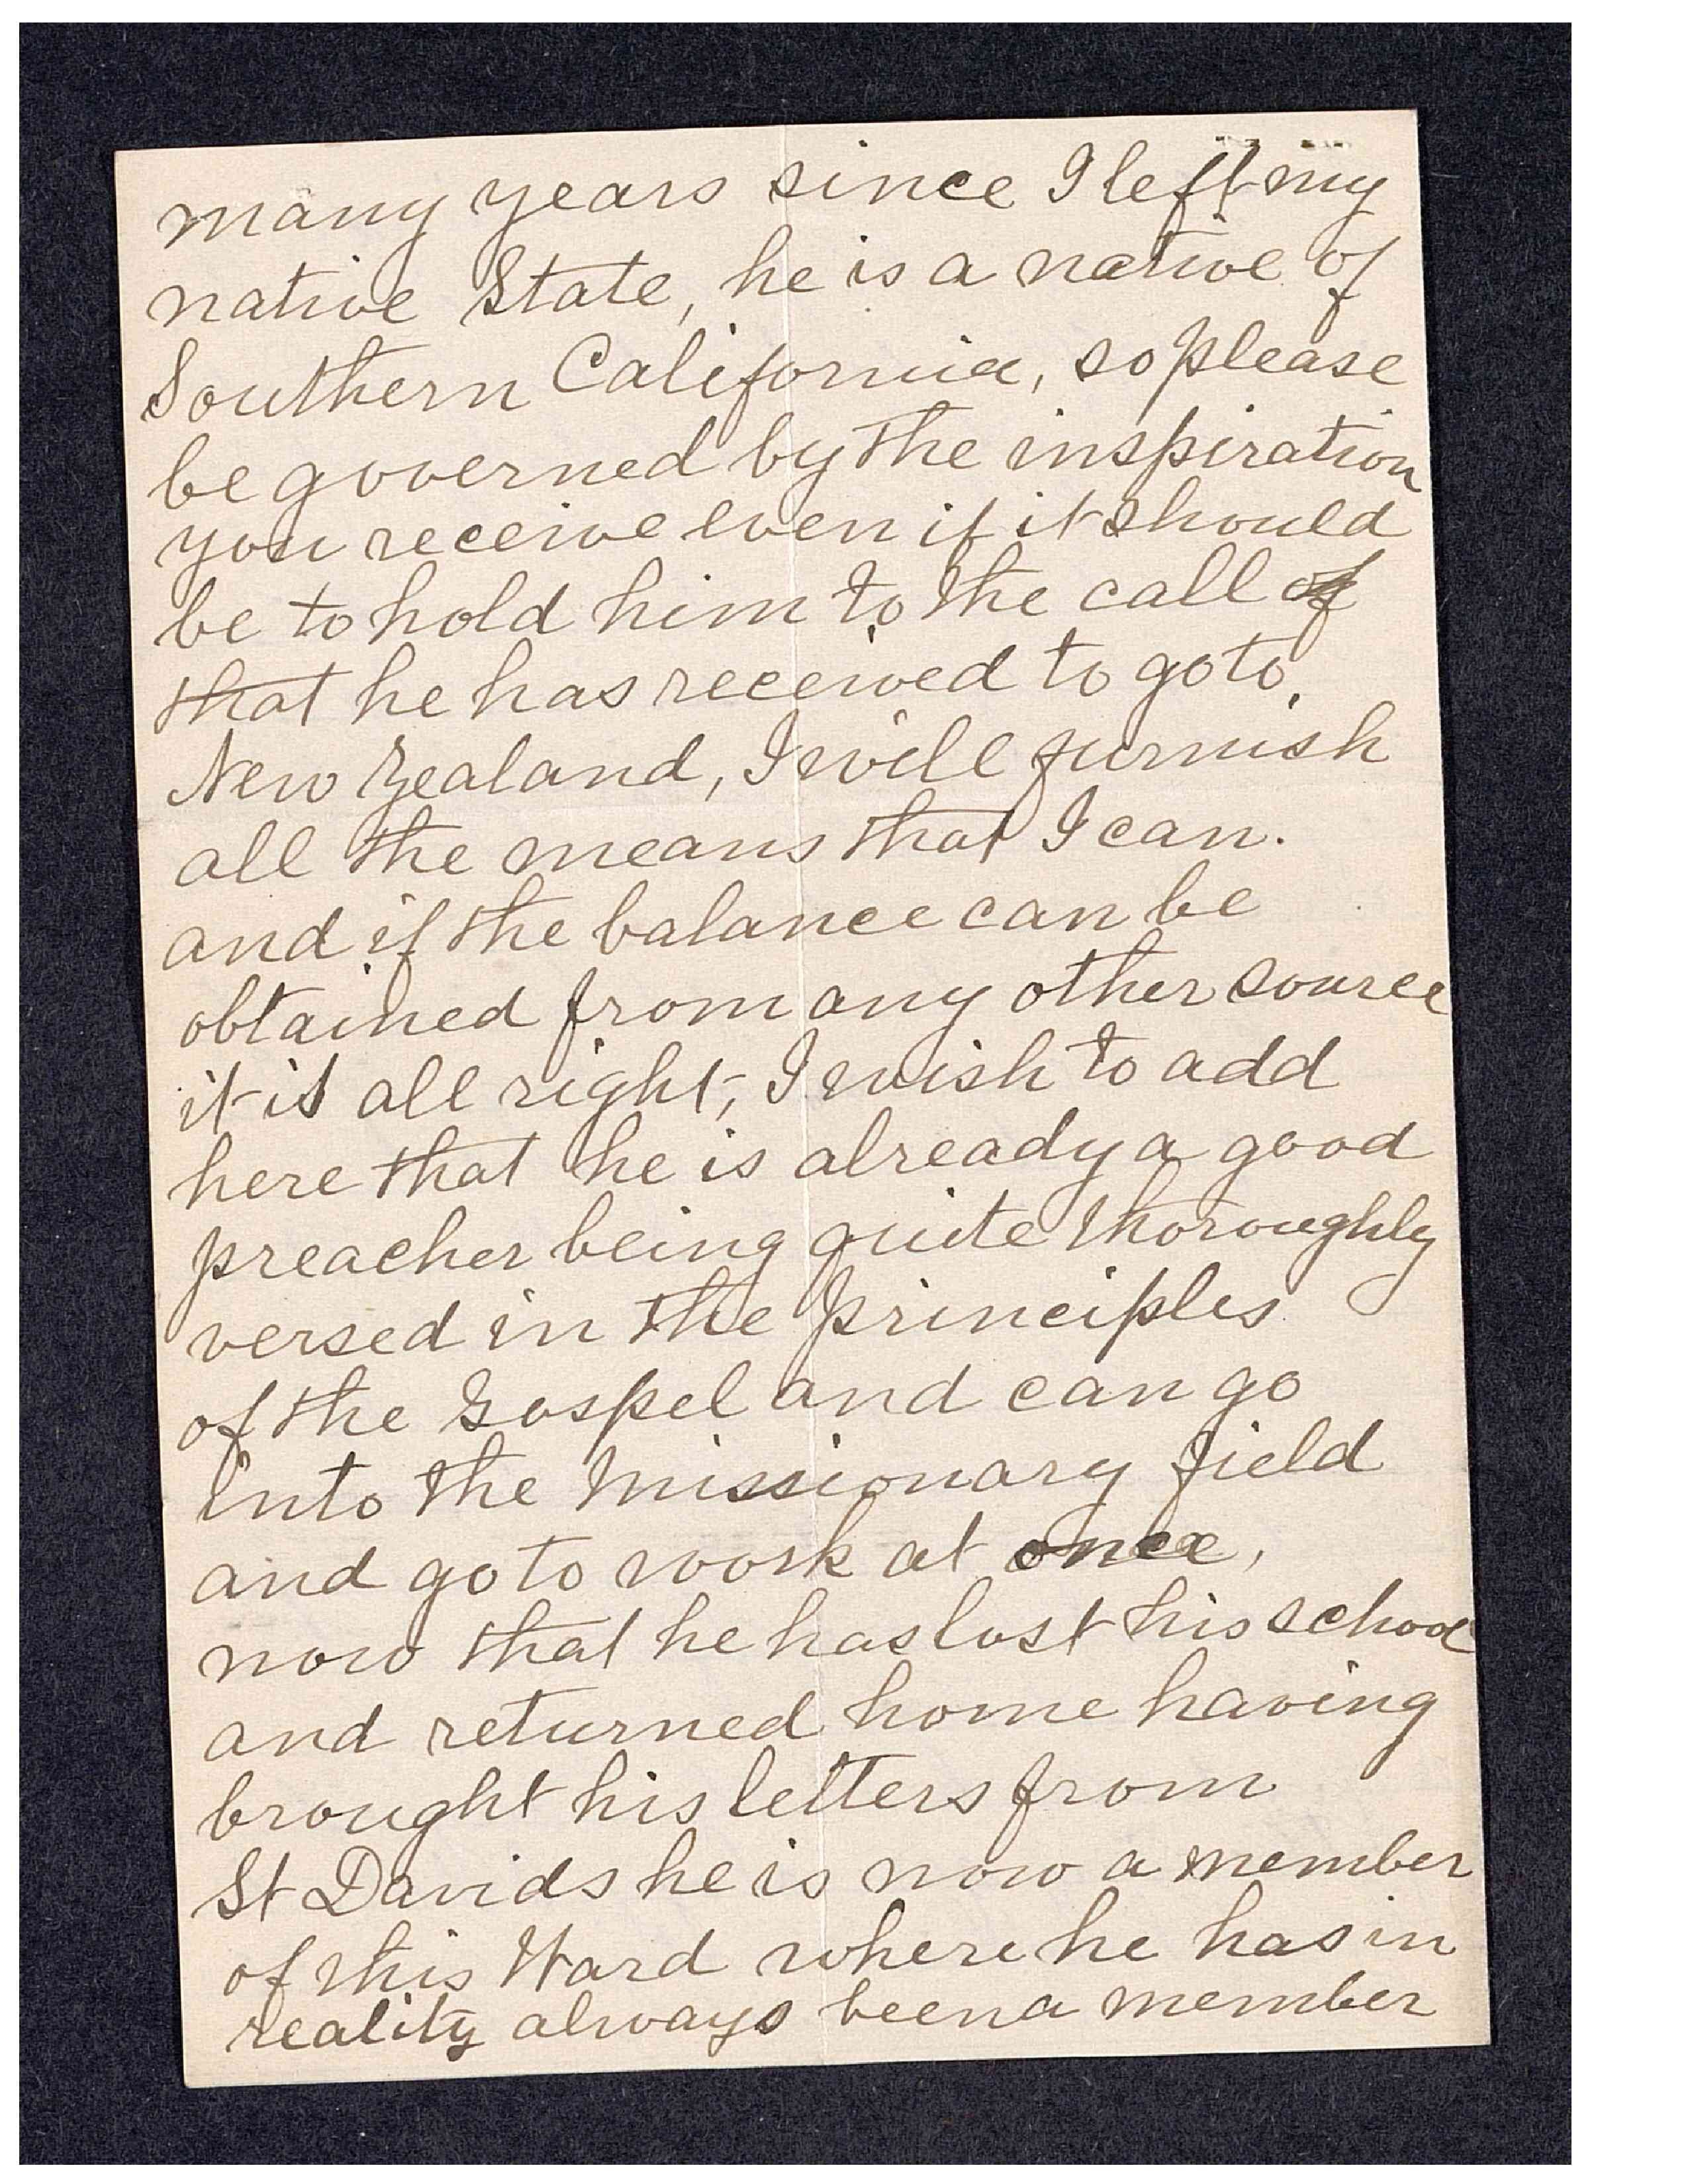 many years since I left my
native State, he is a native of
Southern California, so please
be governed by the inspiration
you receive even if it should
be to hold him to the call of
that he has received to go to
New Zealand, I will furnish
all the means that I can.
and if the balance can be
obtained from any other source
it is all right, I wish to add
here that he is already a good
preacher being quite thoroughly
versed in the principles
of the Gospel and can go
into the missionary field
and go to work at once,
now that he has lost his school
and returned home having
brought his letters from
St Davids he is now a member
of this Ward where he has in
reality always been a member